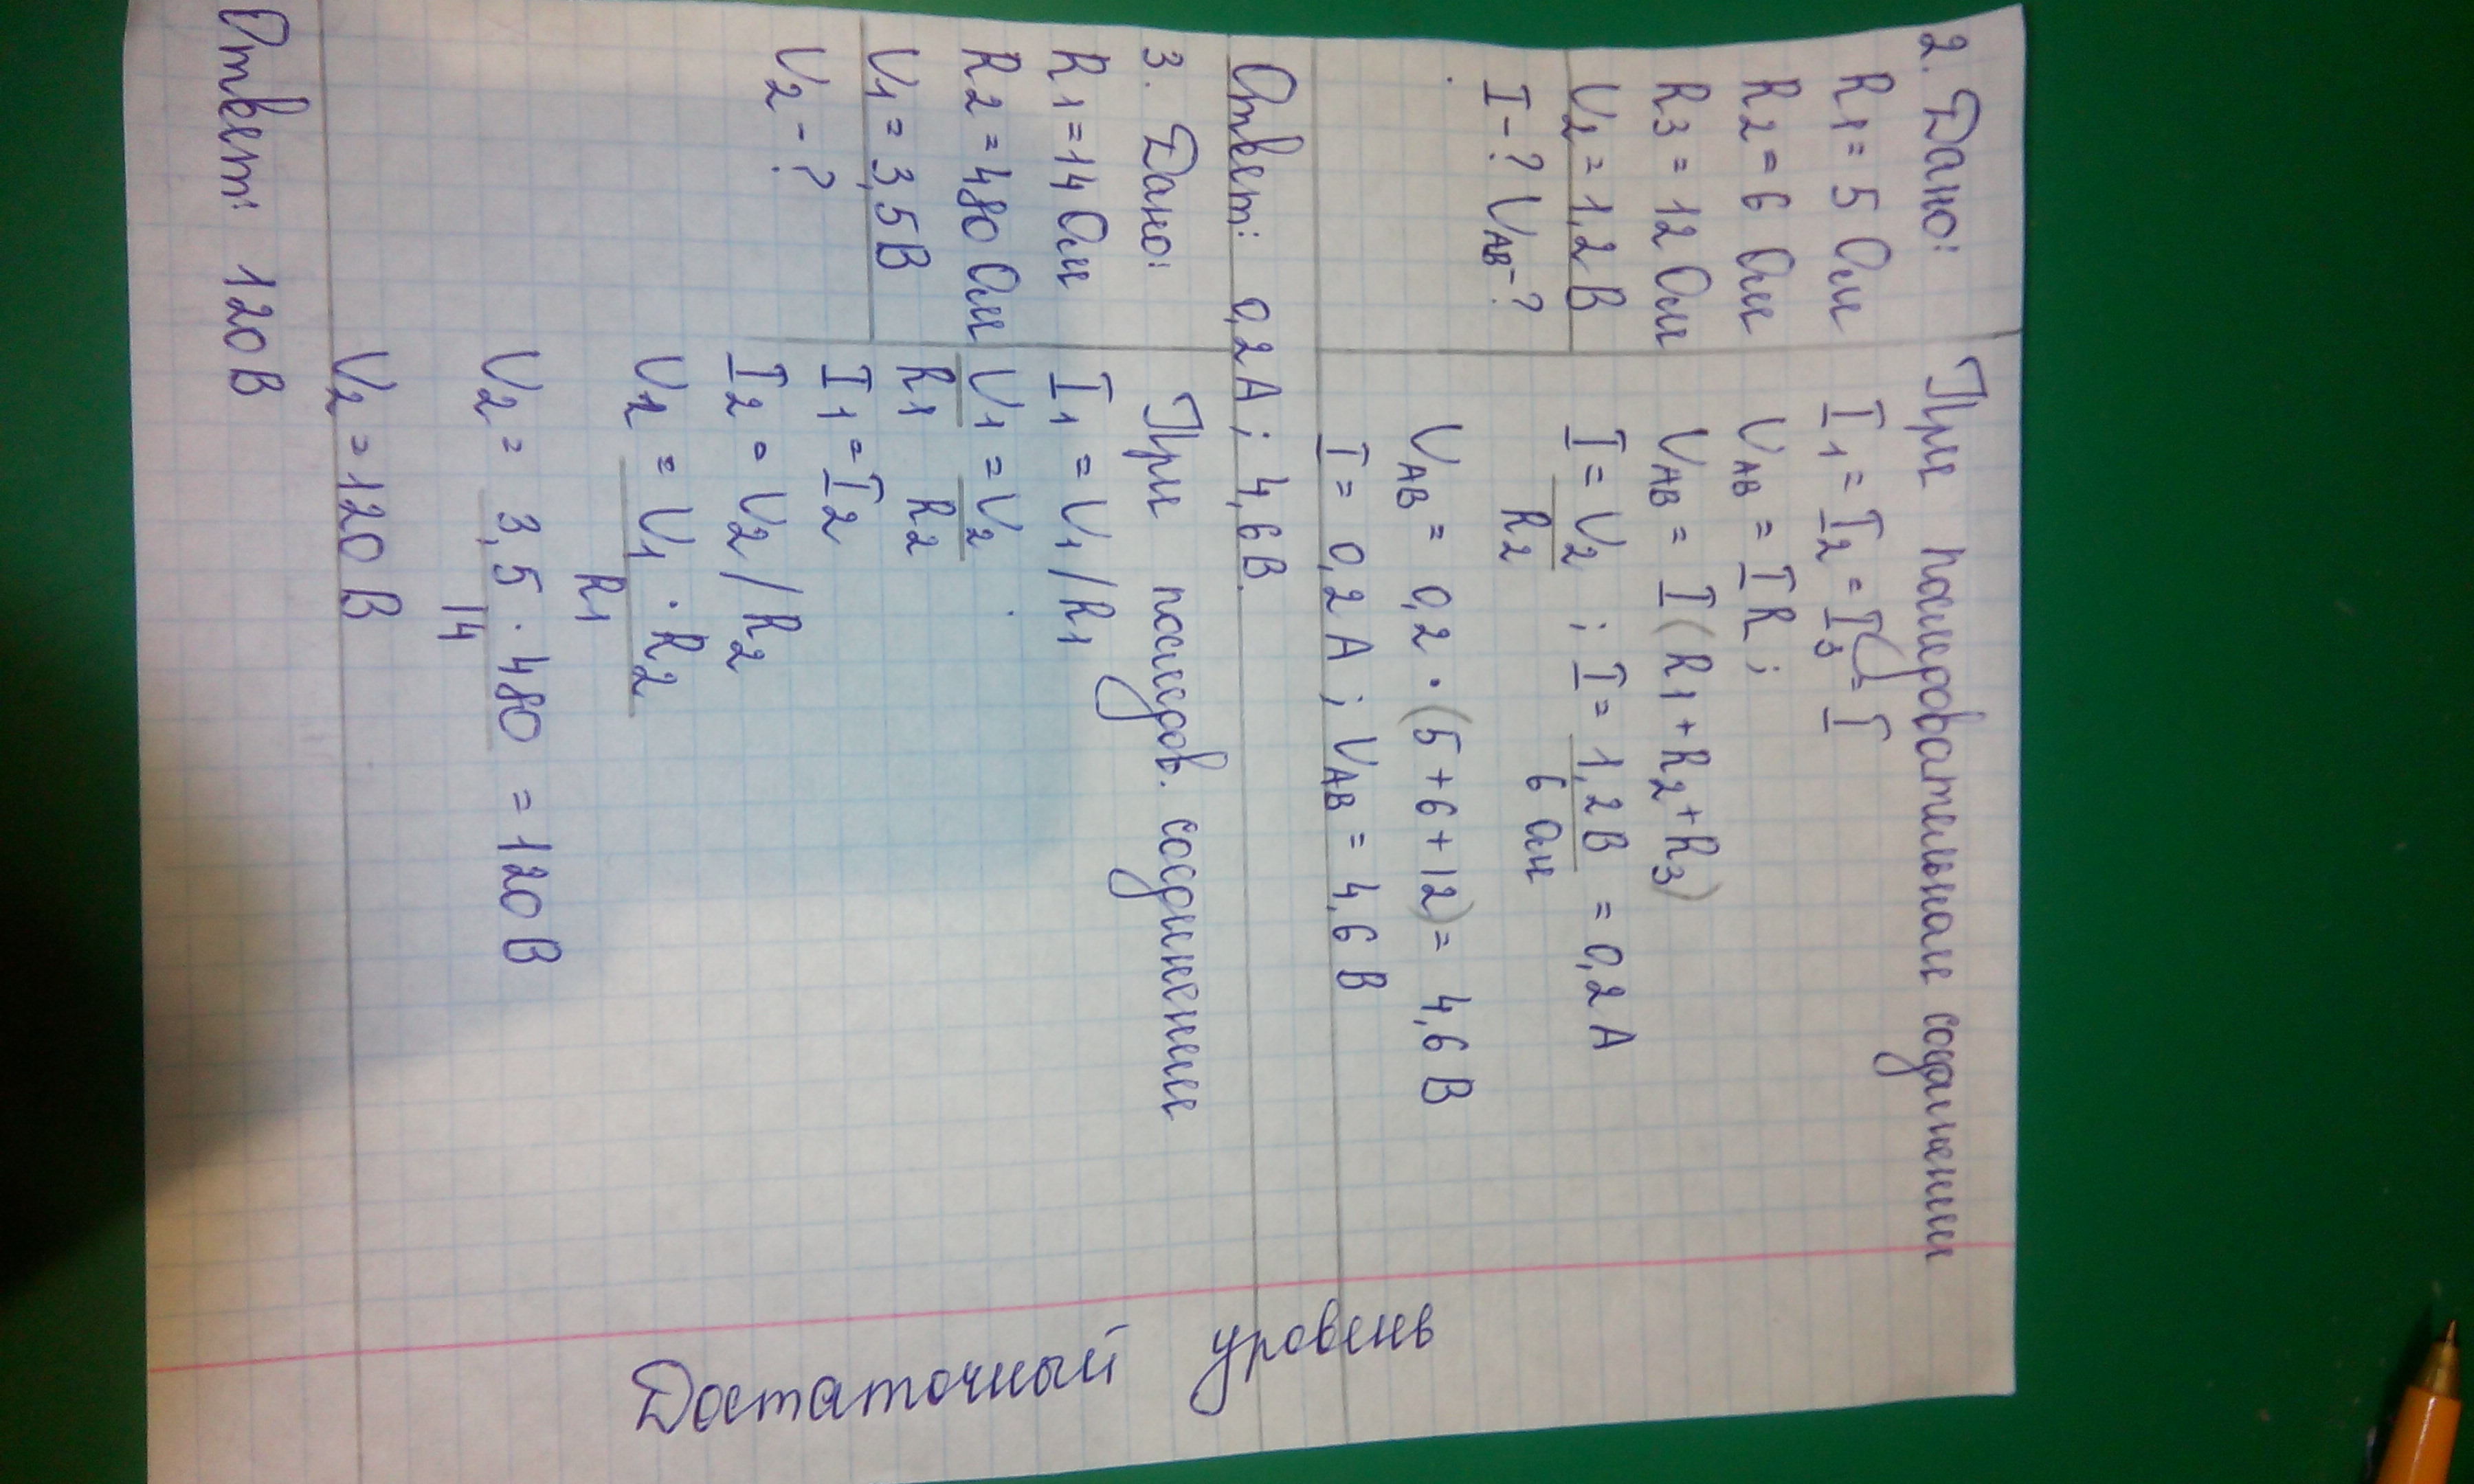 2. Дано:
R1 = 5 Ом
R2 = 6 Ом
R3 = 12 Ом
U2 = 1,2 В
I - ? UАВ - ?
При последовательном соединении
I1 = I2 = I3 = I
UАВ = IR ;
UАВ = I (R1 + R2 + R3)
I = U2/R2 ; I = 1,2В/6 Ом = 0,2 А
UАВ = 0,2 · (5 + 6 + 12) = 4,6 В
I = 0,2 А ; UАВ = 4,6 В
Ответ: 0,2А ; 4,6В.
3. Дано:
R1 = 14 Ом
R2 = 480 Ом
U1 = 3,5В
U2 - ?
При последов. соединении
I1 = U1 / R1
U1/R1 = U2/R2
I1 = I2
I2 = U2 / R2
U2 = U1 · R2/R1
U2 = 3,5 · 480/14 = 120 В
U2 = 120 В
Ответ: 120 В
Достаточный уровень